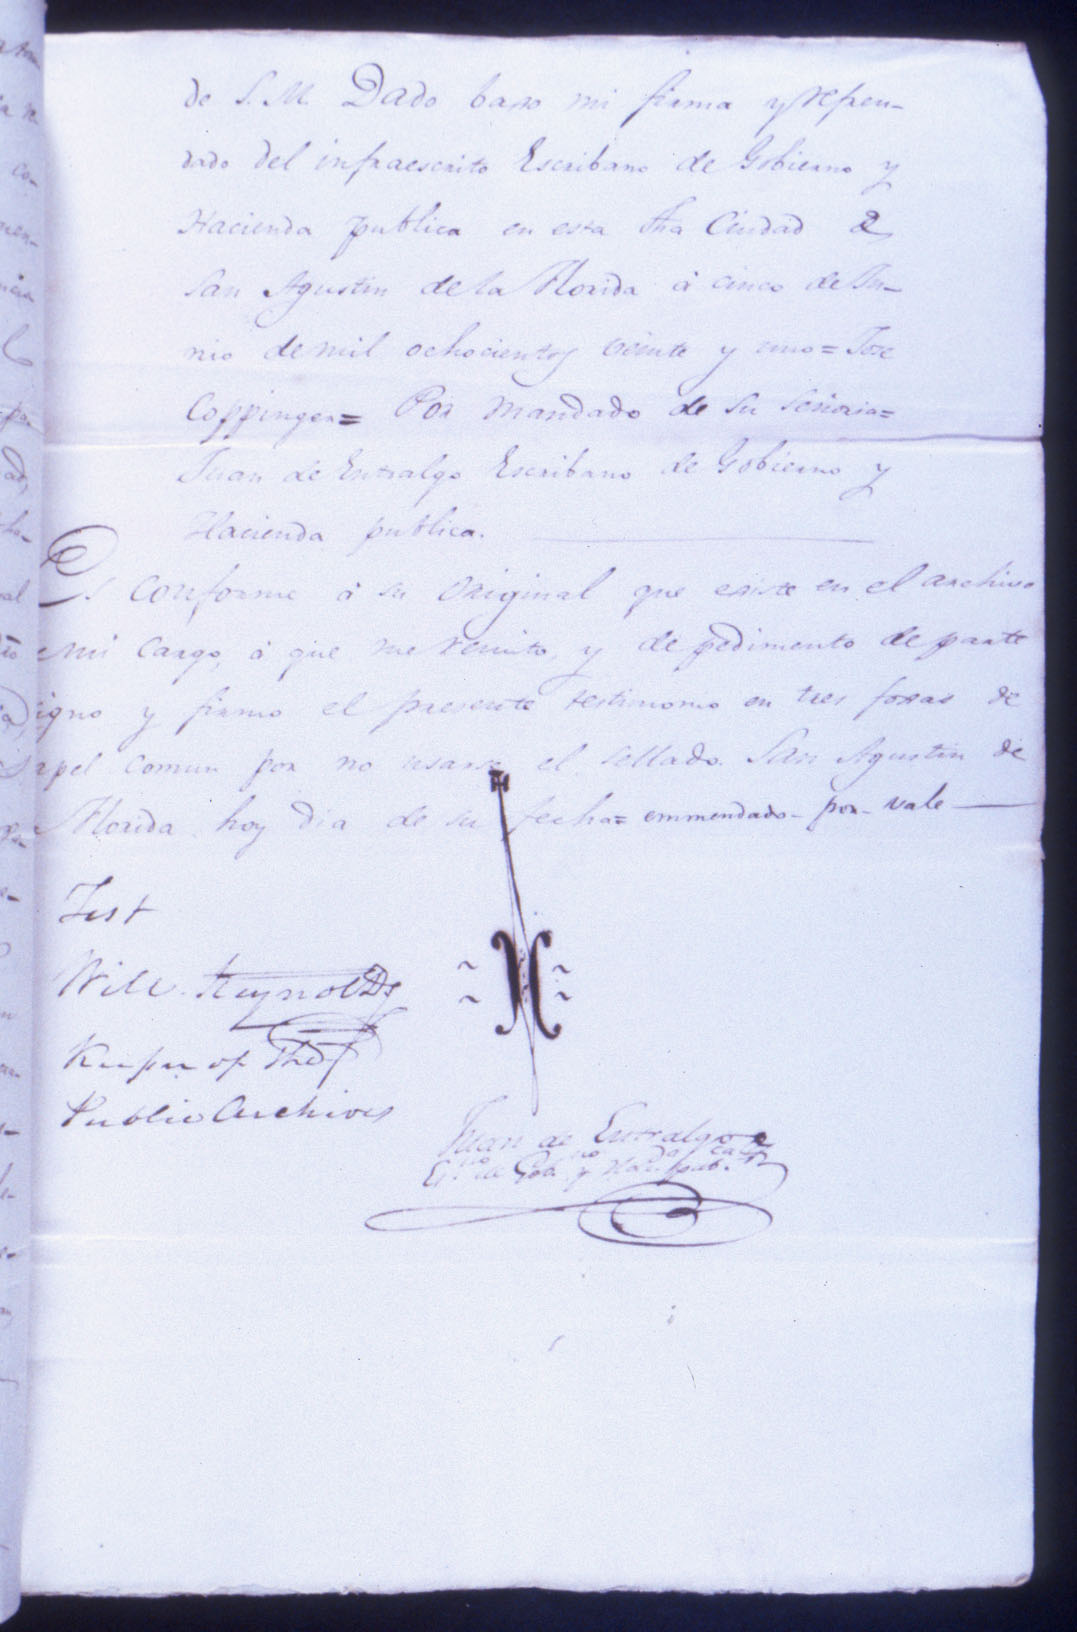 de S. M. Dado baxo mi firma y refren-
dado del infraescrito Escribano de Gobierno y
Hacienda publica en esta dha Ciudad de
San Agustin de la Florida à cinco de Ju-
nio de mil ochocientos veinte y uno = Jose
Coppinger = Por mandado de su señoria =
Juan de Entralgo Escribano de Gobierno y
Hacienda publica.
Es conforme à su original que existe en el archivo
mi cargo, à que me remito, y de pedimento de parte
igno y firmo el presente testimonio en tres foxas de
apel comun por no usarse el sellado. San Agustin de
Florida hoy dia de su fecha = emmendado - por - vale
Test
Will. Reynolds
Keeper of The
Public Archives
Juan de Entralgo
Esno. de Gobno. y Hacda. pubca.